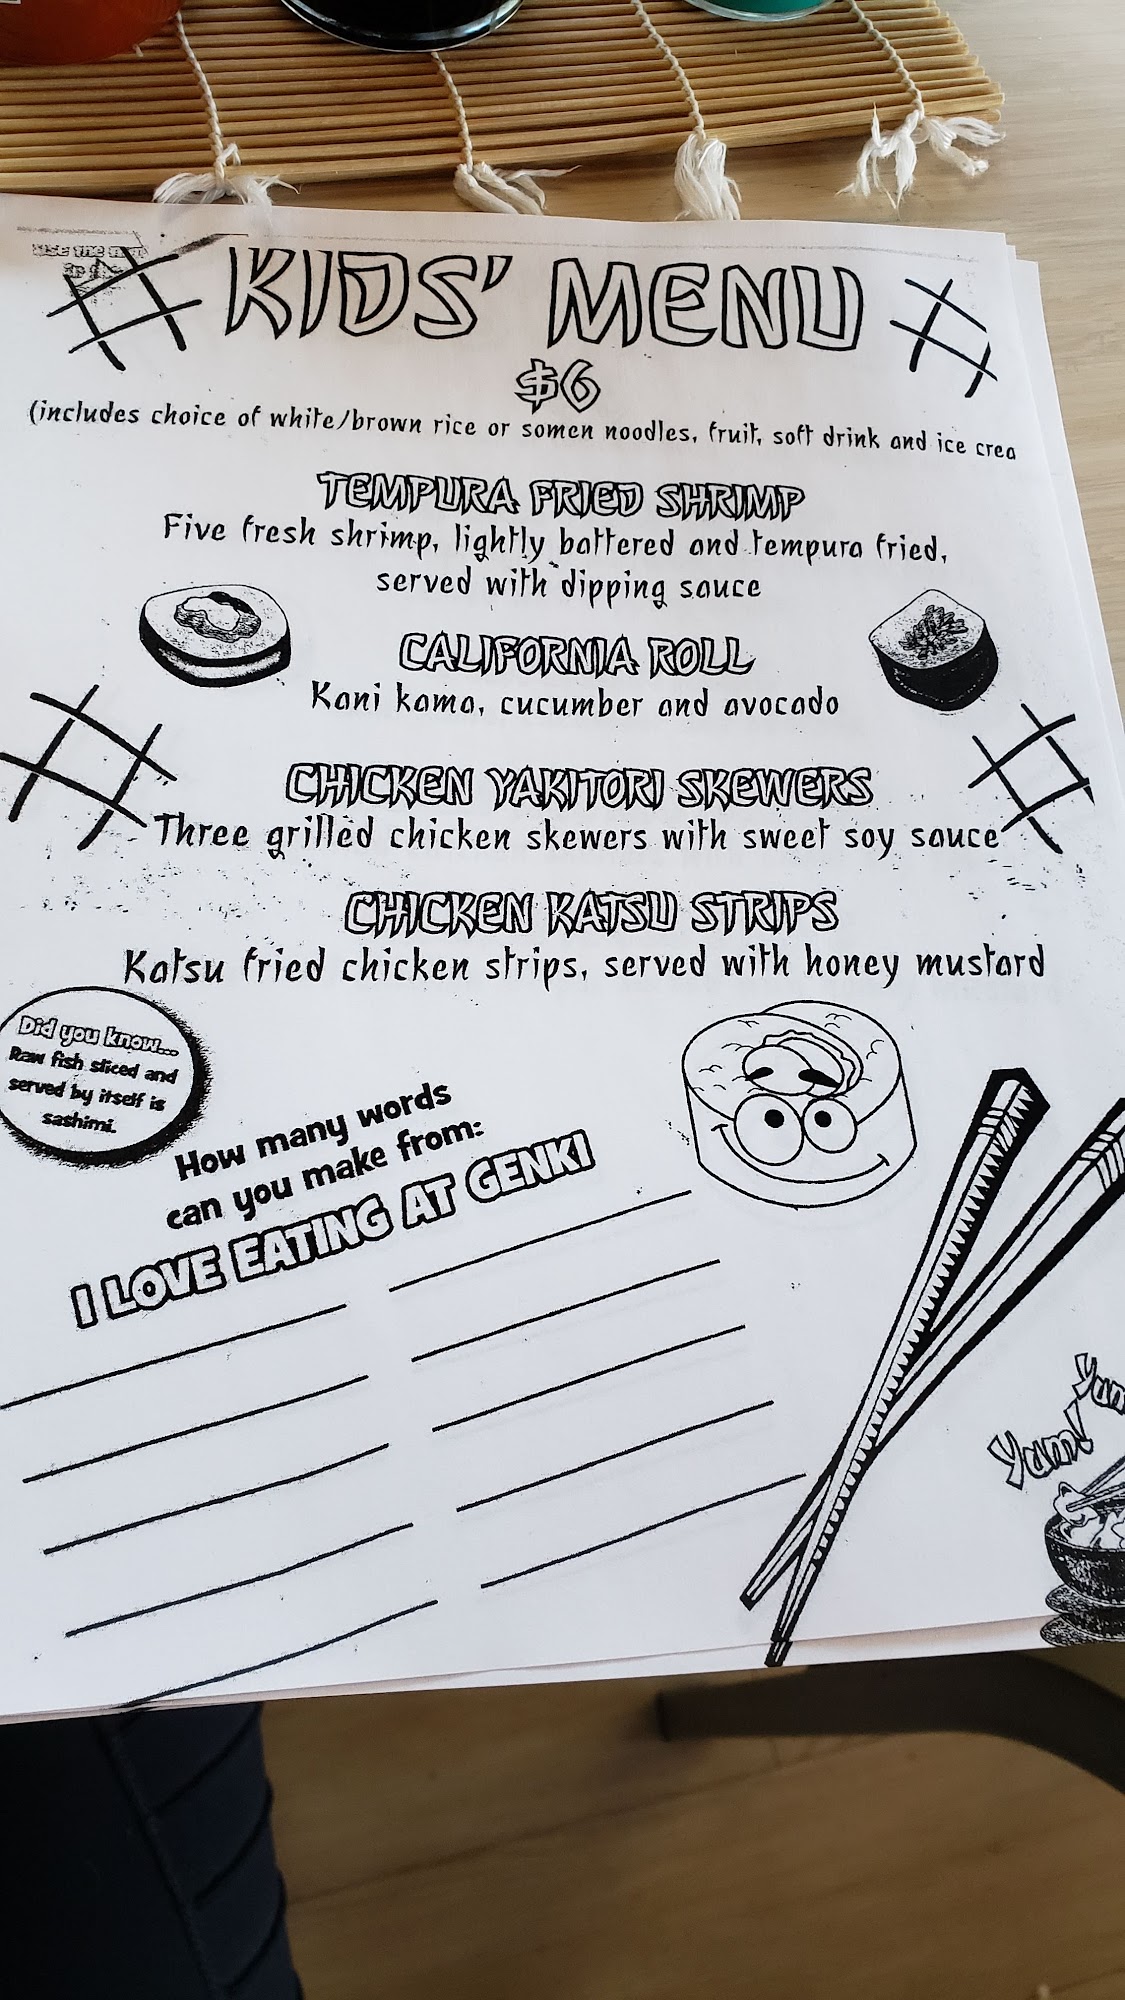 use the
KIDS' MENU
$6
(includes choice of white/brown rice or somen noodles, fruit, soft drink and ice crea
TEMPURA FRIED SHRIMP
Five fresh shrimp, lightly battered and tempura fried,
served with dipping sauce
CALIFORNIA ROLL
Kani kama, cucumber and avocado
CHICKEN YAKITORI SKEWERS
Three grilled chicken skewers with sweet soy sauce
CHICKEN KATSU STRIPS
Katsu fried chicken strips, served with honey mustard
Did you know...
Raw fish sliced and
served by itself is
sashimi.
How many words
can you make from:
I LOVE EATING AT GENKI
Yum
Yum!